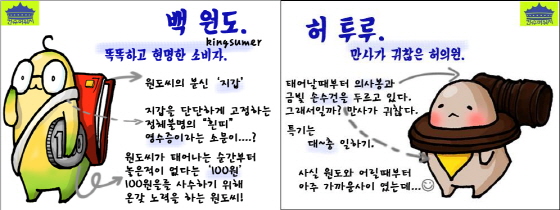 백 원도.
kingsumer
똑똑하고 현명한 소비자.
원도씨의 분신 '지갑'
지갑을 단단하게 고정하는
정체불명의 "흰띠"
영수증이라는 소문이....?
원도씨가 태어나는 순간부터
놓은적이 없다는 '100원'
100원을 사수하기 위해
온갖 노력을 하는 원도씨!
100
허 투루.
만사가 귀찮은 허의원.
태어날때부터 의사봉과
금빛 손수건을 두르고 있다.
그래서일까? 만사가 귀찮다.
특기는
대~충 일하기.
사실 원도와 어릴때부터
아주 가까운사이 였는데...